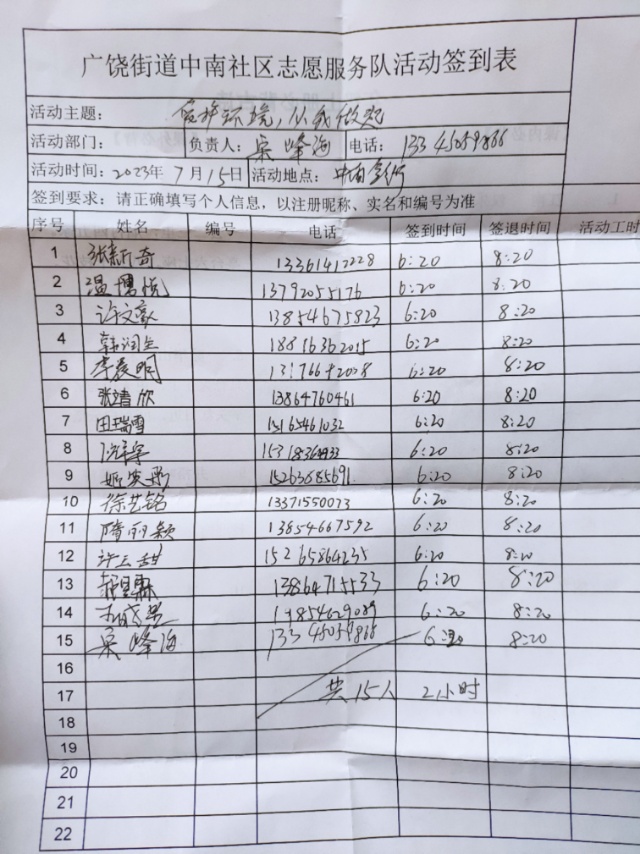 广饶街道中南社区志愿服务队活动签到表
活动主题： 环境，从我做起
活动部门： 负责人： 峰海 电话： 13345059866
活动时间：2023年7月15日 活动地点：中南
签到要求：请正确填写个人信息，以注册昵称、实名和编号为准
序号 姓名 编号 电话 签到时间 签退时间 活动工时
1 张新奇 13361412228 6:20 8:20
2 温 13792055176 6:20 8:20
3 许文豪 13854675823 6:20 8:20
4 韩润 18816362015 6:20 8:20
5 李晨明 6:20 8:20
6 张靖欣 13864760461 6:20 8:20
7 田瑞雪 15165461032 6:20 8:20
8 6:20 8:20
9 姬 15263685691 6:20 8:20
10 徐艺铭 13371550073 6:20 8:20
11 隋丽颖 13854667592 6:20 8:20
12 许云甜 15265864235 6:20 8:20
13 13864715533 6:20 8:20
14 6:20 8:20
15 峰海 13345059866 6:20 8:20
16
17 共15人 2小时
18
19
20
21
22